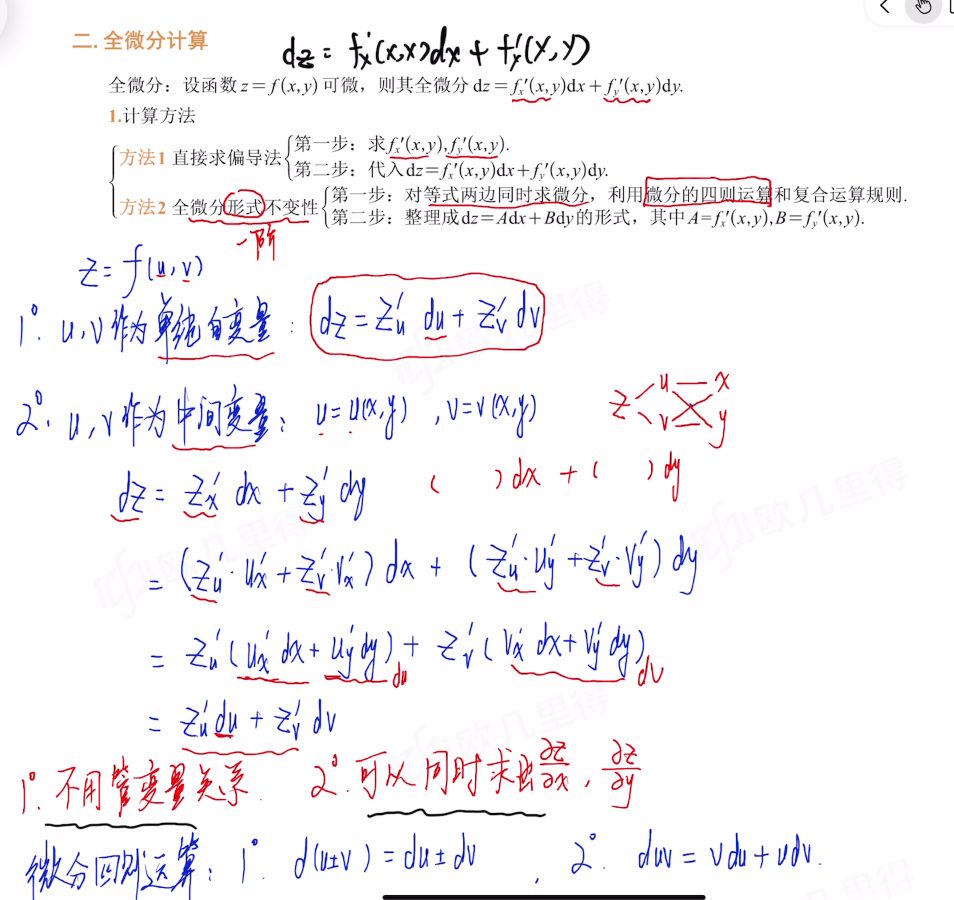 二. 全微分计算
dz = f'x(x,x)dx + f'y(x,y)
全微分：设函数 z=f(x,y) 可微，则其全微分 dz=fx'(x,y)dx+fy'(x,y)dy.
1.计算方法
方法1 直接求偏导法
第一步：求fx'(x,y),fy'(x,y).
第二步：代入dz=fx'(x,y)dx+fy'(x,y)dy.
方法2 全微分形式不变性
第一步：对等式两边同时求微分，利用微分的四则运算和复合运算规则.
第二步：整理成dz=Adx+Bdy的形式，其中A=fx'(x,y),B=fy'(x,y).
一阶
z = f(u,v)
1°. u,v作为单纯自变量： dz = z'u du + z'v dv
2°. u,v作为中间变量： u=u(x,y) , v=v(x,y)
z u x
v y
dz = z'x dx + z'y dy ( )dx + ( )dy
= (z'u·u'x + z'v·v'x) dx + (z'u·u'y + z'v·v'y) dy
= z'u (u'x dx + u'y dy) + z'v (v'x dx + v'y dy)
du dv
= z'u du + z'v dv
1°. 不用管变量关系. 2°. 可以同时求出 ∂z/∂x , ∂z/∂y
微分四则运算： 1° d(u±v) = du ± dv , 2° duv = vdu + udv.
欧几里得
欧几里得
欧几里得
欧几里得